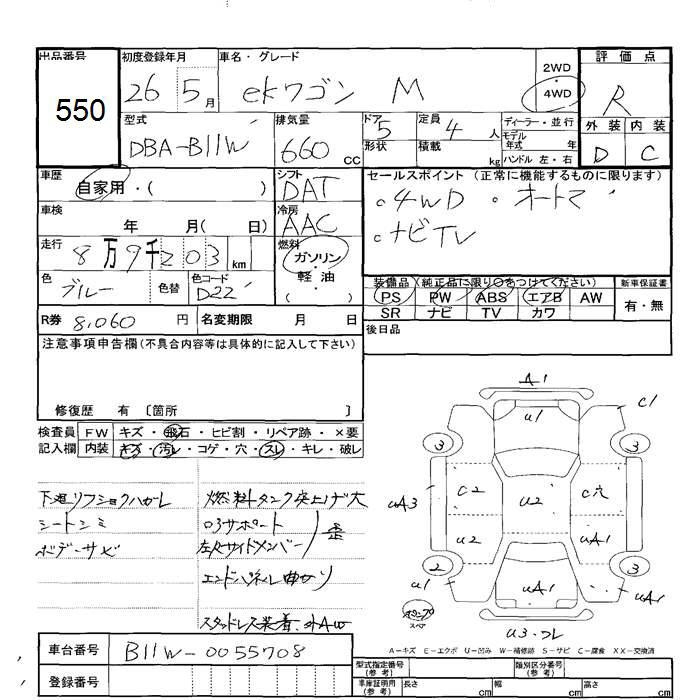 出品番号
550
初度登録年月
26 5月
車名・グレード
ekワゴン M
2WD
4WD
評価点
R
外装 内装
D C
型式
DBA-B11W
排気量
660 cc
ドア 5
形状
定員 4 人
積載 kg
ディーラー・並行
モデル
年式 年
ハンドル 左・右
車歴
自家用・( )
シフト
DAT
車検
年 月( 日)
冷房
AAC
走行
8万9千203 km
燃料
ガソリン・軽油
・( )
色
ブルー
色替
色コード
D22
R券 8,060 円
名変期限 月 日
セールスポイント (正常に機能するものに限ります)
。4WD 。オートマ
。ナビTV
装備品(純正品に限り○をつけてください)
PS PW ABS エアB AW
SR ナビ TV カワ
新車保証書
有・無
後日品
注意事項申告欄(不具合内容等は具体的に記入して下さい)
修復歴 有 〔箇所 〕
検査員記入欄
FW キズ・飛石・ヒビ割・リペア跡・×要
内装 キズ・汚レ・コゲ・穴・スレ・キレ・破レ
下廻リフショクハガレ
シートシミ
ボデーサビ
燃料タンク突上ゲ大
ロアサポート
左右サイドメンバー
歪
エンドパネル曲
スタッドレス装着
A1
C1
u1
3
3
C2
u2
C穴
uA3
u2
uA1
2
3
u1
uA1
uA1
スペア
u3・フレ
A－キズ E－エクボ U－凹み W－補修跡 S－サビ C－腐食 XX－交換済
車台番号
B11W-0055708
登録番号
型式指定番号
(参考)
類別区分番号
(参考)
車庫証明用
(参考)
長さ cm
幅 cm
高さ cm